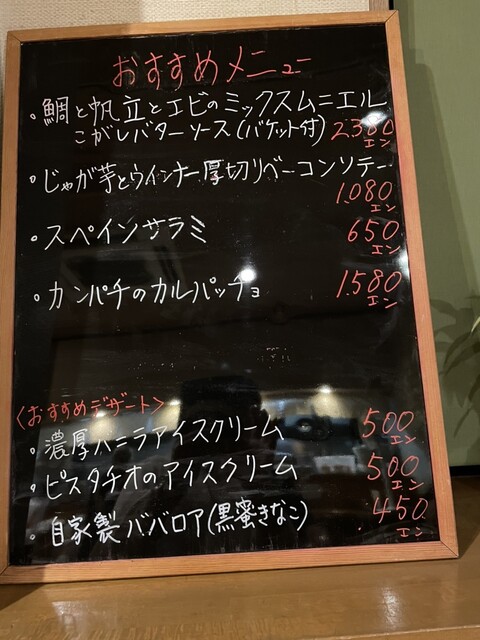 おすすめメニュー
・鯛と帆立とエビのミックスムニエル
こがしバターソース(バケット付) 2380エン
・じゃが芋とウインナー厚切りベーコンソテー
1.080エン
・スペインサラミ 650エン
・カンパチのカルパッチョ 1.580エン
<おすすめデザート>
・濃厚バニラアイスクリーム 500エン
・ピスタチオのアイスクリーム 500エン
・自家製ババロア(黒蜜きなこ) 450エン